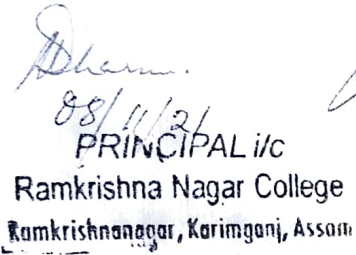 08/11/21
PRINCIPAL i/c
Ramkrishna Nagar College
Ramkrishnanagar, Karimganj, Assam